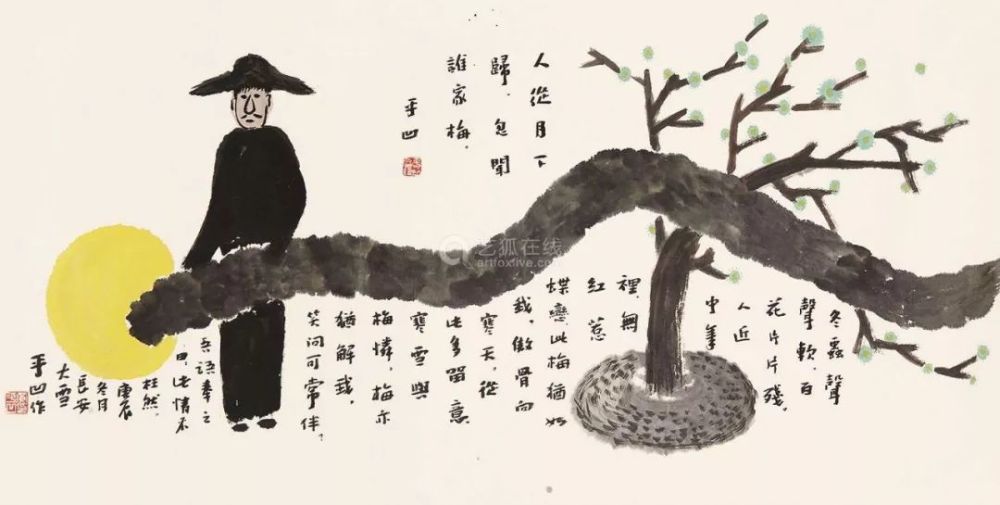 人從月下
歸，忽聞
誰家梅。
平凹
冬蟲聲
聲軟，百
花片片殘。
人近
中年
裡無
紅惹
蝶戀。此梅猶如
我，傲骨向
寒天。從
此多留意
寒雪與
梅憐，梅亦
猶解我，
笑問可常伴？
吾語奉之
曰：此情不
枉然。
庚辰
冬月
長安
大雪
平凹作
艺狐在线
artfoxlive.com